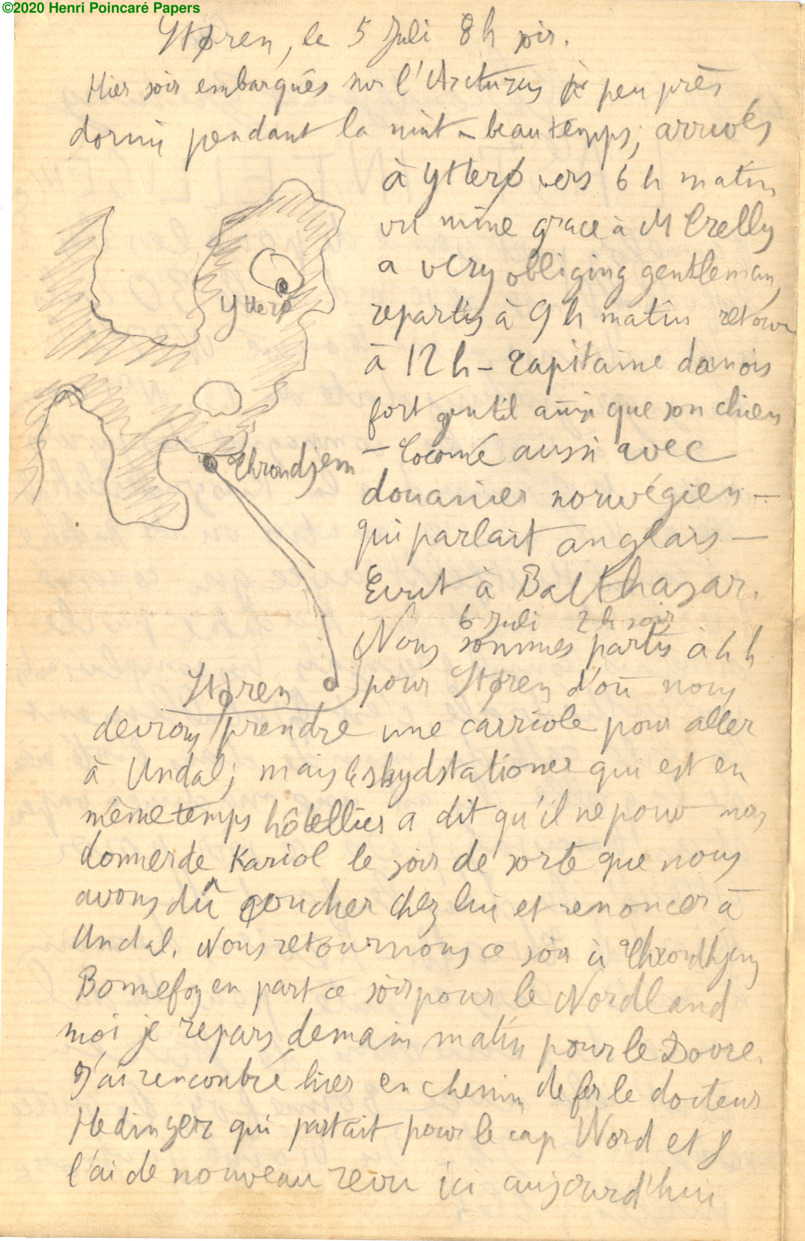 ©2020 Henri Poincaré Papers
Ytøren, le 5 Juli 8 h soir.
Hier soir embarqués sur l'Arcturus à peu près
dormi pendant la nuit – beau temps; arrivés
à Ytterø vers 6 h matin
vu mine grace à M Crelly
a very obliging gentleman,
repartis à 9 h matin retour
à 12 h – Capitaine danois
fort gentil ainsi que son chien
– aussi avec
douanier norwégien –
qui parlait anglais –
Ecrit à Balthasar.
6 Juli 2 h soir
Nous sommes partis à 4 h
pour Støren d'où nous
devions prendre une carriole pour aller
à Undal; mais le skydstationer qui est en
même temps hôtellier a dit qu'il ne pouv nous
donner de Kariol le soir de sorte que nous
avons dû coucher chez lui et renoncer à
Undal. Nous retournons ce soir à Throndhjem
Bonnefoy en part ce soir pour le Nordland
moi je repars demain matin pour le Dovre.
J'ai rencontré hier en chemin de fer le docteur
Hedinger qui partait pour le cap Nord et J
l'ai de nouveau revu ici aujourd'hui
Ytterø
Throndjem
Støren